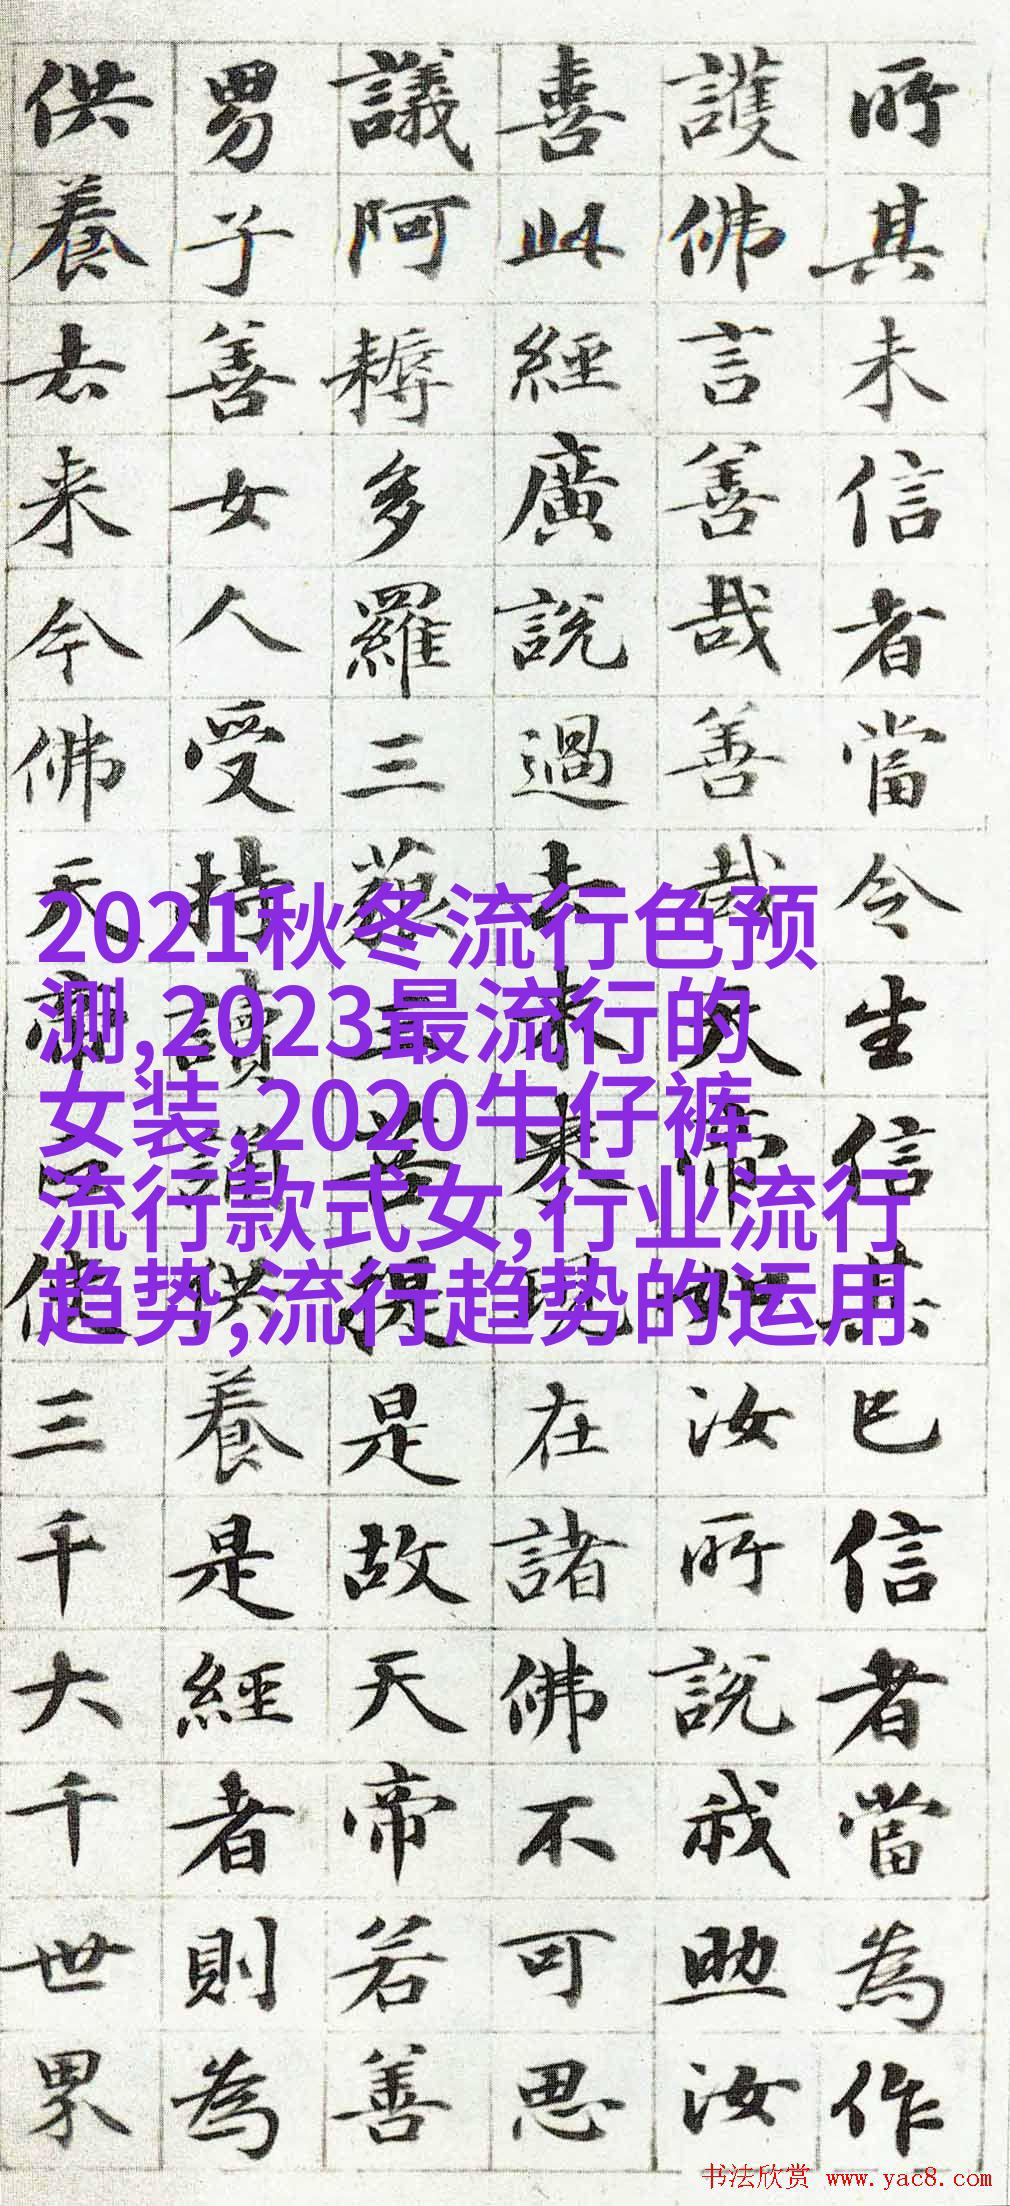 所其未信者當令生信其已信者當為作
護佛言善哉善哉天帝如汝所說我助汝
喜此經廣說過去未来現在諸佛不可思
議阿耨多羅三藐三菩提是故天帝若善
男子善女人受持讀誦供養是經者則為
供養去来今佛天帝正使三千大千世界
2021秋冬流行色预
测,2023最流行的
女装,2020牛仔裤
流行款式女,行业流行
趋势,流行趋势的运用
书法欣赏 www.yac8.com